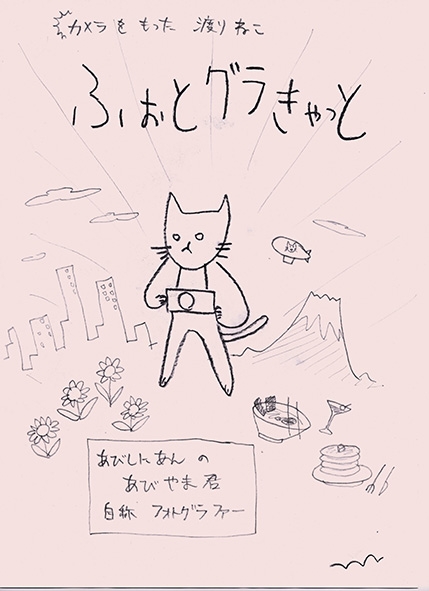 カメラを もった 渡りねこ
ふぉとグラきゃっと
あびしにあん の
あびやま君
自称 フォトグラファー